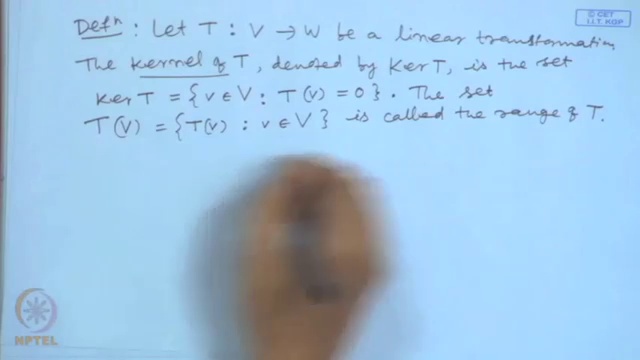 © CET
I.I.T. KGP
Defⁿ : Let T : V → W be a linear transformation
The kernel of T, denoted by Ker T, is the set
Ker T = {v ∈ V : T(v) = 0}. The set
T(V) = {T(v) : v ∈ V} is called the range of T.
NPTEL